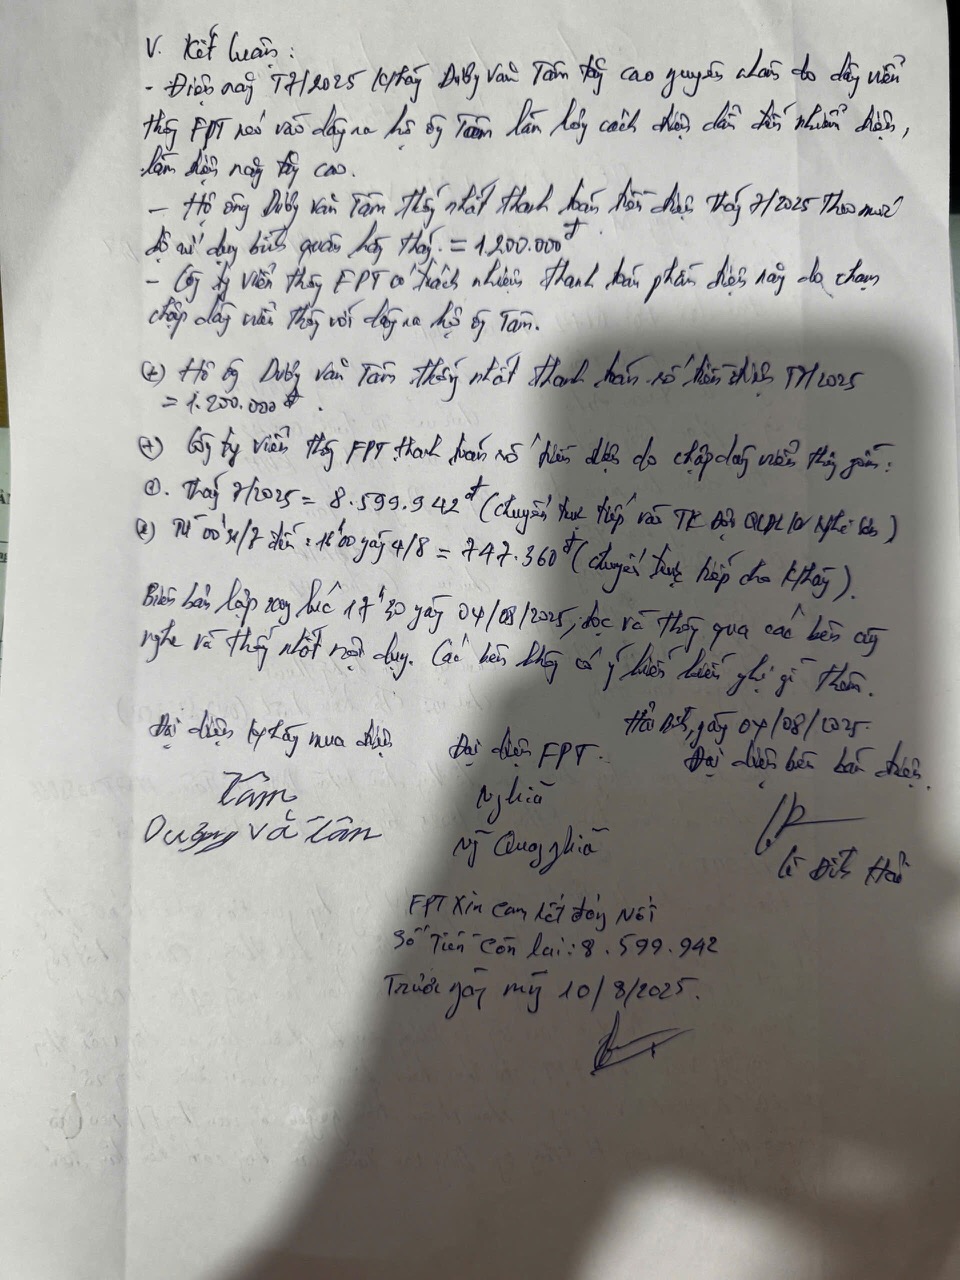 V. Kết luận:
- Điện năng T7/2025 K/hàng Dương Văn Tâm tăng cao nguyên nhân do dây viễn
thông FPT néo vào dây ra hộ ông Tâm làm hỏng cách điện dẫn đến nhiễm điện,
làm điện năng tăng cao.
- Hộ ông Dương Văn Tâm thống nhất thanh toán tiền điện tháng 7/2025 theo mức
độ sử dụng bình quân hàng tháng = 1.200.000đ
- Công ty viễn thông FPT có trách nhiệm thanh toán phần điện năng do chạm
chập dây viễn thông với dây ra hộ ông Tâm.
(+) Hộ ông Dương Văn Tâm thống nhất thanh toán số tiền điện T7/2025
= 1.200.000đ.
(+) Công ty viễn thông FPT thanh toán số tiền điện do chập dây viễn thông gồm:
Tháng 7/2025 = 8.599.942đ (chuyển trực tiếp vào TK Đội QLĐL/KV Nghi Sơn)
Từ 00 /7 đến 00 ngày 4/8 = 747.360đ (chuyển trực tiếp cho K/hàng).
Biên bản lập xong lúc 17h30 ngày 04/08/2025, đọc và thông qua các bên cùng
nghe và thống nhất nội dung. Các bên không có ý kiến kiến nghị gì thêm.
ngày 04/08/2025.
Đại diện K/hàng mua điện
Đại diện FPT.
Đại diện bên bán điện.
Tâm
Dương Văn Tâm
Nghĩa
Ng Quang Nghĩa
Lê Đình
FPT Xin cam kết đóng nốt
Số Tiền còn lại: 8.599.942
Trước ngày mùng 10/8/2025.